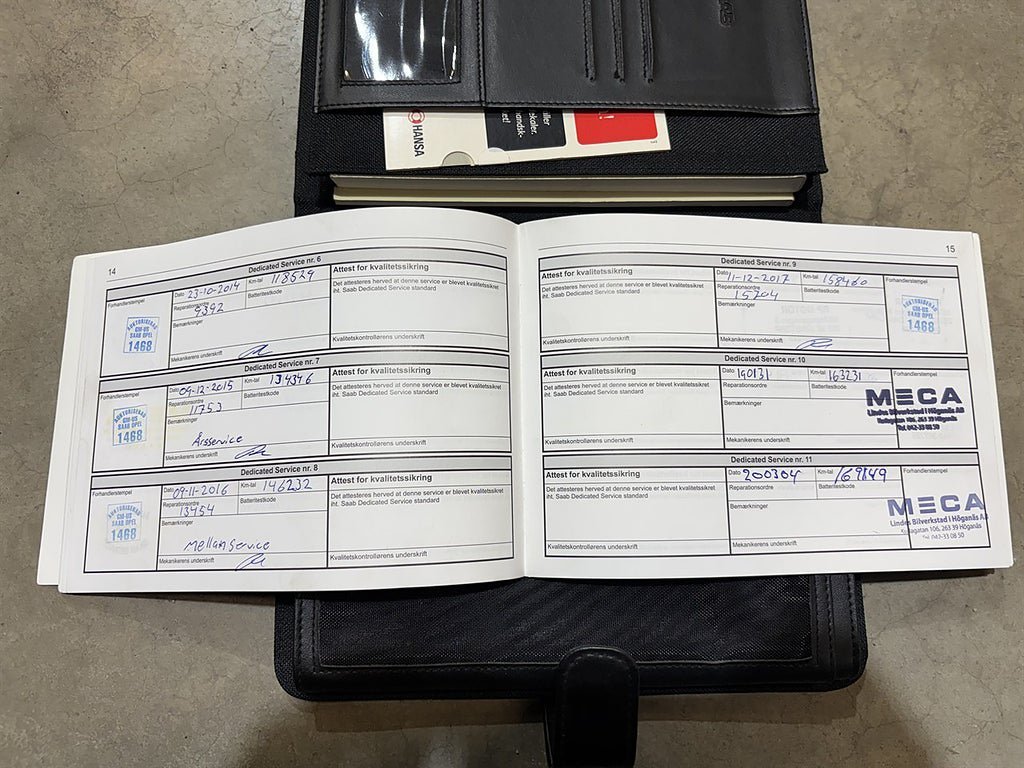 HANSA
14
Dedicated Service nr. 6
Forhandlerstempel
AUKTORISERAD
GM-US
SAAB OPEL
1468
Dato 23-10-2014
Km-tal 118529
Reparationsordre
9392
Batteritestkode
Bemærkninger
Mekanikerens underskrift
Attest for kvalitetssikring
Det attesteres herved at denne service er blevet kvalitetssikret
iht. Saab Dedicated Service standard
Kvalitetskontrollørens underskrift
Dedicated Service nr. 7
Forhandlerstempel
AUKTORISERAD
GM-US
SAAB OPEL
1468
Dato 09-12-2015
Km-tal 134346
Reparationsordre
11753
Batteritestkode
Bemærkninger
Årsservice
Mekanikerens underskrift
Attest for kvalitetssikring
Det attesteres herved at denne service er blevet kvalitetssikret
iht. Saab Dedicated Service standard
Kvalitetskontrollørens underskrift
Dedicated Service nr. 8
Forhandlerstempel
AUKTORISERAD
GM-US
SAAB OPEL
1468
Dato 09-11-2016
Km-tal 146232
Reparationsordre
13454
Batteritestkode
Bemærkninger
Mellanservice
Mekanikerens underskrift
Attest for kvalitetssikring
Det attesteres herved at denne service er blevet kvalitetssikret
iht. Saab Dedicated Service standard
Kvalitetskontrollørens underskrift
15
Dedicated Service nr. 9
Attest for kvalitetssikring
Det attesteres herved at denne service er blevet kvalitetssikret
iht. Saab Dedicated Service standard
Kvalitetskontrollørens underskrift
Dato 11-12-2017
Km-tal 158460
Reparationsordre
15204
Batteritestkode
Bemærkninger
Mekanikerens underskrift
Forhandlerstempel
AUKTORISERAD
GM-US
SAAB OPEL
1468
Dedicated Service nr. 10
Attest for kvalitetssikring
Det attesteres herved at denne service er blevet kvalitetssikret
iht. Saab Dedicated Service standard
Kvalitetskontrollørens underskrift
Dato 190131
Km-tal 163231
Reparationsordre
Batteritestkode
Bemærkninger
Mekanikerens underskrift
Forhandlerstempel
MECA
Lindes Bilverkstad i Höganäs AB
106, 263 39 Höganäs
Tel. 042-33 08 50
Dedicated Service nr. 11
Attest for kvalitetssikring
Det attesteres herved at denne service er blevet kvalitetssikret
iht. Saab Dedicated Service standard
Kvalitetskontrollørens underskrift
Dato 200304
Km-tal 169849
Reparationsordre
Batteritestkode
Bemærkninger
Mekanikerens underskrift
Forhandlerstempel
MECA
Lindes Bilverkstad i Höganäs AB
106, 263 39 Höganäs
Tel. 042-33 08 50